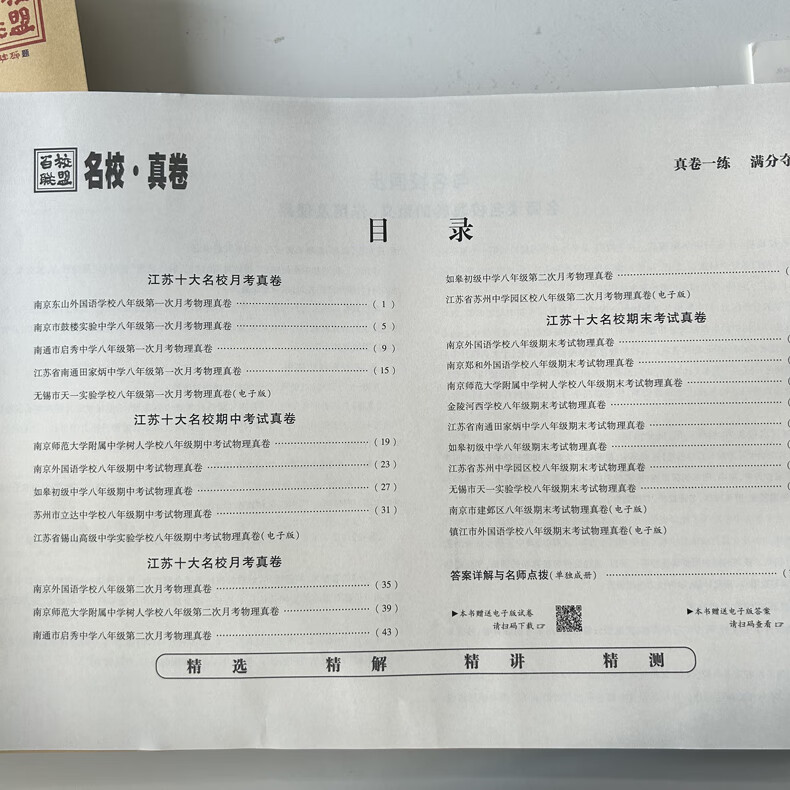 百校
联盟
名校·真卷
真卷一练 满分夺
目 录
江苏十大名校月考真卷
南京东山外国语学校八年级第一次月考物理真卷 ……………… ( 1 )
南京市鼓楼实验中学八年级第一次月考物理真卷 ……………… ( 5 )
南通市启秀中学八年级第一次月考物理真卷 ……………… ( 9 )
江苏省南通田家炳中学八年级第一次月考物理真卷 ……………… ( 15 )
无锡市天一实验学校八年级第一次月考物理真卷(电子版)
江苏十大名校期中考试真卷
南京师范大学附属中学树人学校八年级期中考试物理真卷 ……………… ( 19 )
南京外国语学校八年级期中考试物理真卷 ……………… ( 23 )
如皋初级中学八年级期中考试物理真卷 ……………… ( 27 )
苏州市立达中学校八年级期中考试物理真卷 ……………… ( 31 )
江苏省锡山高级中学实验学校八年级期中考试物理真卷(电子版)
江苏十大名校月考真卷
南京外国语学校八年级第二次月考物理真卷 ……………… ( 35 )
南京师范大学附属中学树人学校八年级第二次月考物理真卷 ……………… ( 39 )
南通市启秀中学八年级第二次月考物理真卷 ……………… ( 43 )
如皋初级中学八年级第二次月考物理真卷 ………………
江苏省苏州中学园区校八年级第二次月考物理真卷(电子版)
江苏十大名校期末考试真卷
南京外国语学校八年级期末考试物理真卷 ………………
南京郑和外国语学校八年级期末考试物理真卷 ………………
南京师范大学附属中学树人学校八年级期末考试物理真卷 ………………
金陵河西学校八年级期末考试物理真卷 ………………
江苏省南通田家炳中学八年级期末考试物理真卷 ………………
如皋初级中学八年级期末考试物理真卷 ………………
江苏省苏州中学园区校八年级期末考试物理真卷 ………………
无锡市天一实验学校八年级期末考试物理真卷 ………………
南京市建邺区八年级期末考试物理真卷(电子版)
镇江市外国语学校八年级期末考试物理真卷(电子版)
答案详解与名师点拨(单独成册) ………………
▶本书赠送电子版试卷
请扫码下载☞
▶本书赠送电子版答案
请扫码查看☞
精 选 精 解 精 讲 精 测